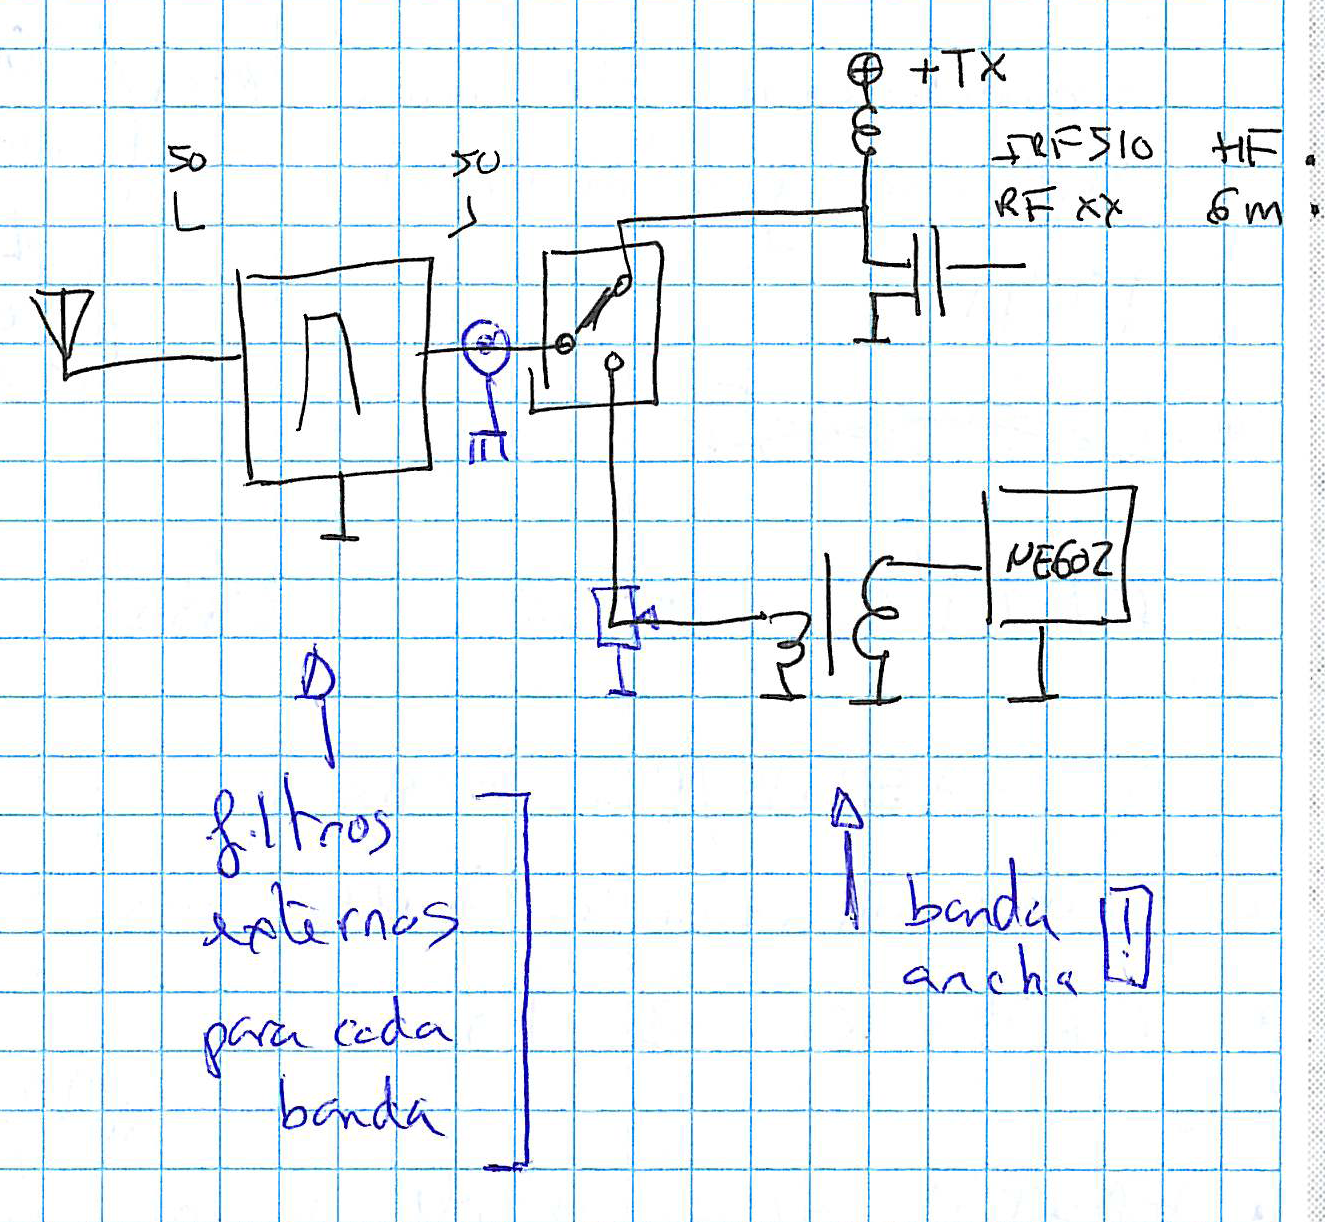 +TX
IRF510 HF.
RF xx 6m.
50
50
NE602
filtros
externos
para cada
banda
banda
ancha !